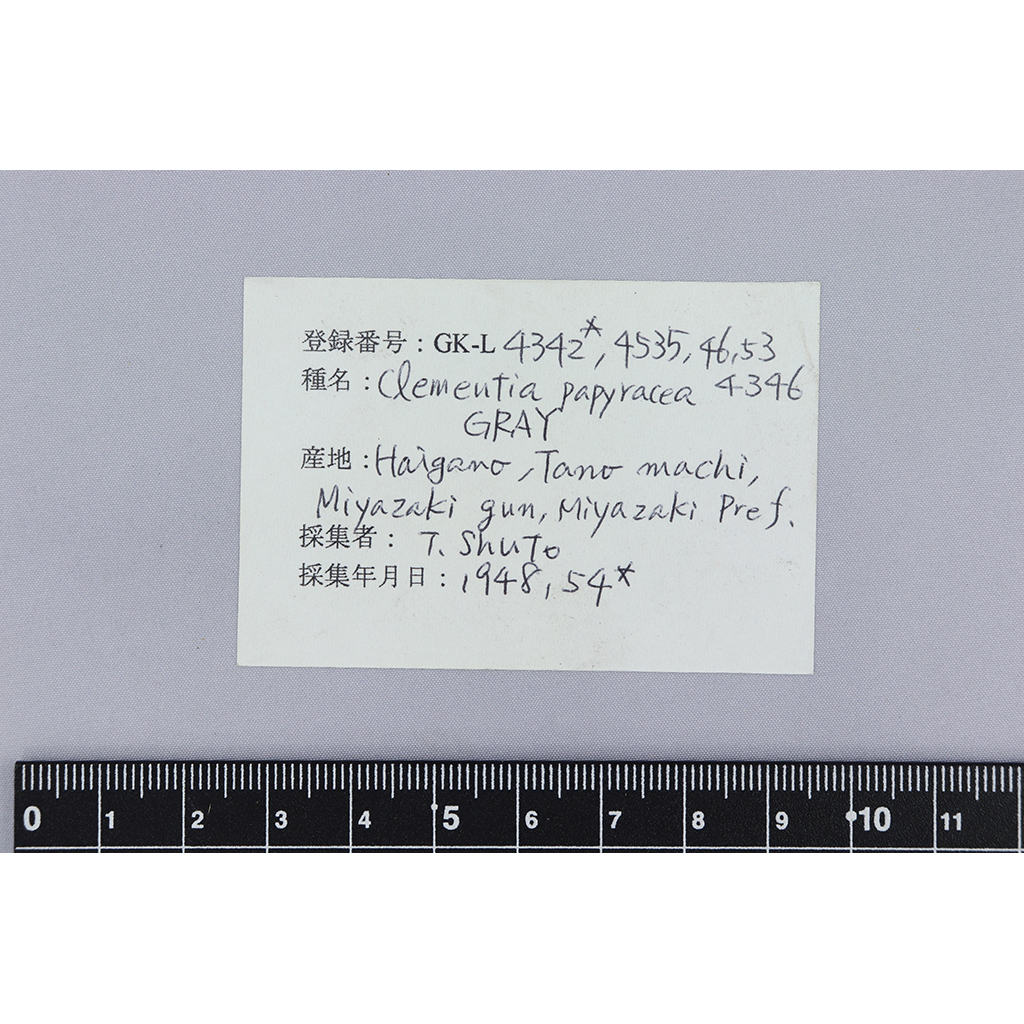 登録番号：GK-L 4342*, 4535, 46, 53
種名：Clementia papyracea 4346
GRAY
産地：Haigano, Tano machi,
Miyazaki gun, Miyazaki Pref.
採集者： T. Shuto
採集年月日：1948, 54*
0 1 2 3 4 5 6 7 8 9 10 11